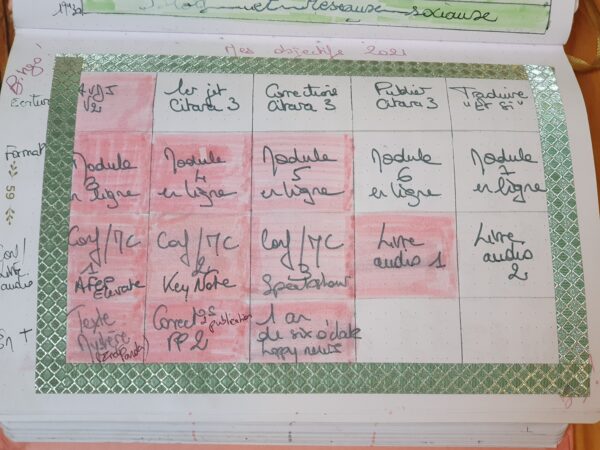 19h30
et réseaux sociaux
Mes objectifs 2021
Bingo!
AVJS
V2
1er jet
Citara 3
Correction
Citara 3
Publier
Citara 3
Traduire
"Et si"
Format
Module
en ligne
Module
4
en ligne
Module
5
en ligne
Module
6
en ligne
Module
7
en ligne
59
Conf/MC
1
Elevate
Conf/MC
2
KeyNote
Conf/MC
3
Livre
audio 1
Livre
audio
2
Livre
audio
Texte
Correct°
PP 2
1 an
de six o'clock
happy news